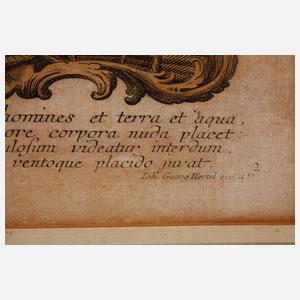 homines et terra et aqua,
ore, corpora nuda placet:
ulosum videatur interdum,
ventoque placido juvat.
Joh. Georg Hertel exc.
2